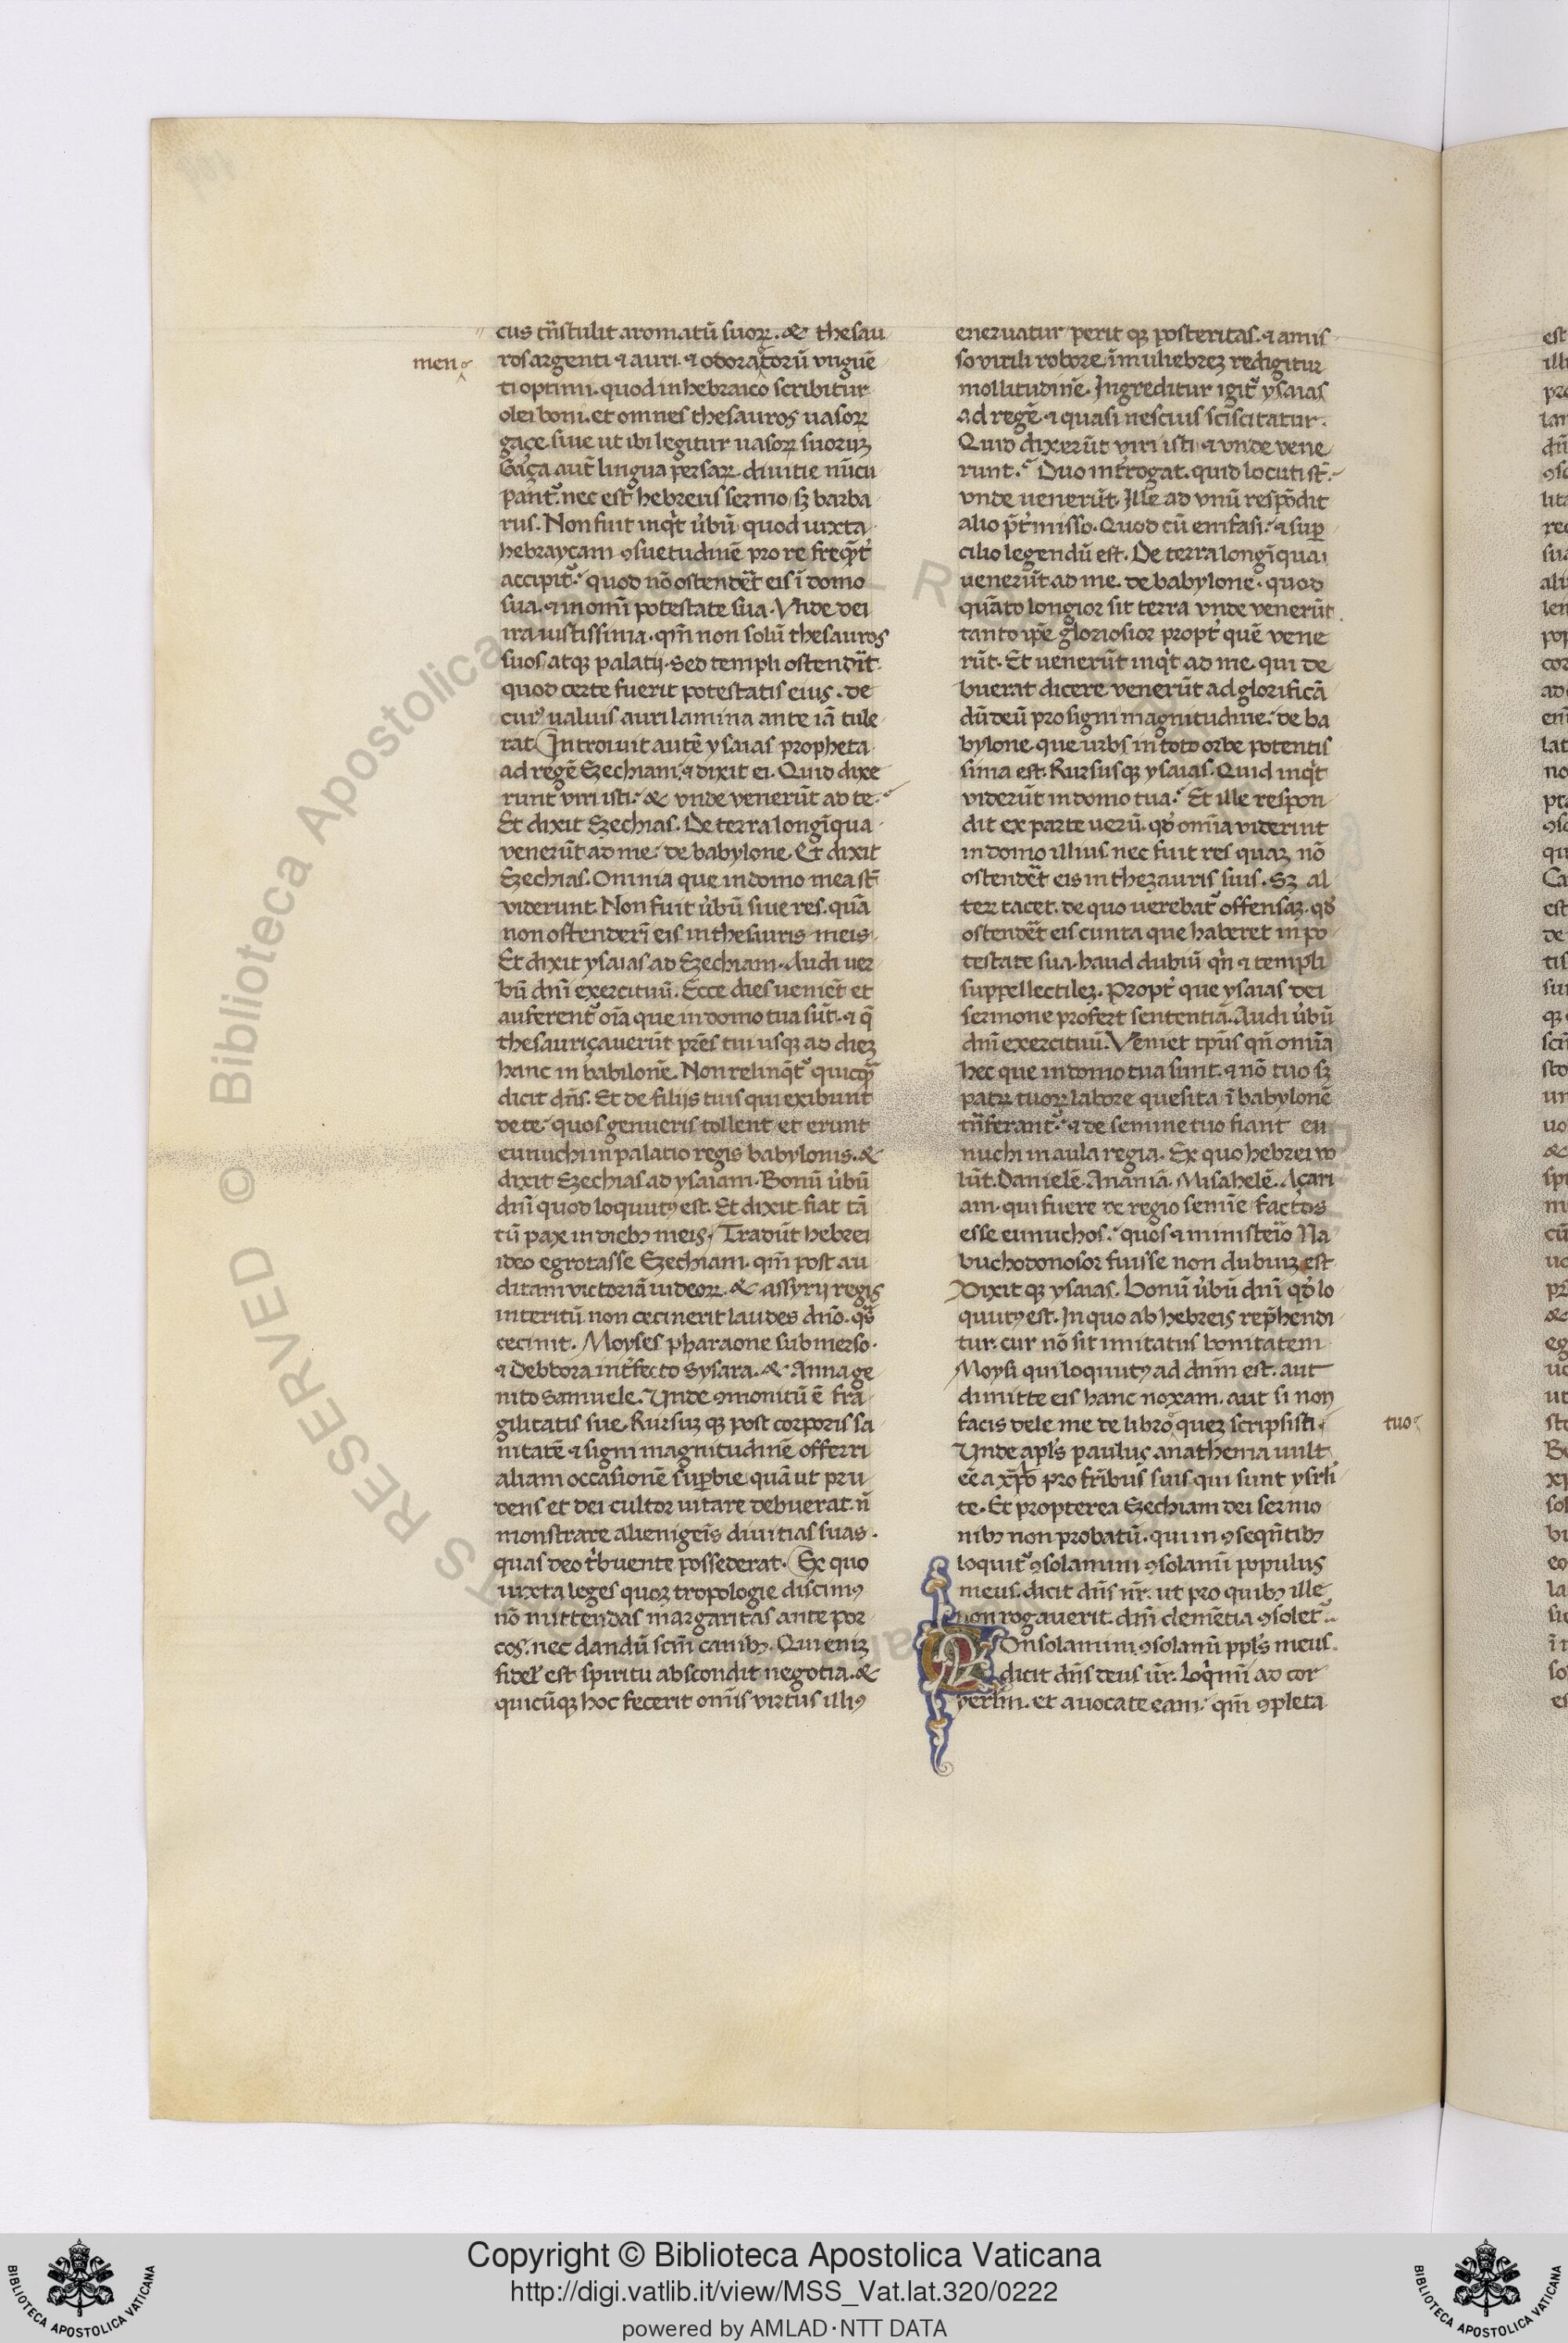 cus tn̄stulit aromatū suoꝝ. & thesau
ros argenti ⁊ auri. ⁊ odoratorū unguē
men
ti optimi. quod in hebraico scribitur
olei boni. et omnes thesauros uasoꝝ
gaçe siue ut ibi legitur uasoꝝ suoruꝫ
Gaça aut̄ lingua persaꝝ diuitie nūcu
pant᷑. nec est hebreus sermo sꝫ barba
rus. Non fuit inqͥt u̓bū quod iuxta
hebraycam ꝯsuetudinē pro re freq̄nt̓
accipit᷑. quod nō ostendēt eis ī domo
sua. ⁊ in omī potestate sua. Vnde dei
ira iustissima. qm̄ non solū thesauros
suos atqꝫ palatij. sed templi ostendīt.
quod certe fuerit potestatis eius. de
cuiꝰ ualuis auri lamina ante iā tule
rat. Introiuit autē ysaias propheta
ad regē Ezechiam. ⁊ dixit ei. Quid dixe
runt viri isti. & vnde venerūt ad te.
Et dixit Ezechias. De terra longīqua
venerūt ad me. de babylone. Et dixit
Ezechias. Omnia que in domo mea st̄
viderunt. Non fuit u̓bū siue res. quā
non ostenderī eis in thesauris meis.
Et dixit ysaias ad Ezechiam. Audi uer
bū dn̄i exercituū. Ecce dies ueniēt et
auferent᷑ oīa que in domo tua sūt. ⁊ q̄
thesauriçauerūt pr̄es tui usqꝫ ad dieꝫ
hanc in babilonē. Non relinq̄t᷑ quicqͣ̄
dicit dn̄s. Et de filijs tuis qui exibunt
de te. quos genueris tollent et erunt
eunuchi in palatio regis babylonis. &
dixit Ezechias ad ysaiam. Bonū u̓bū
dn̄i quod loquutꝰ est. Et dixit fiat tā
tū pax in diebꝫ meis. Tradūt hebrei
ideo egrotasse Ezechiam. qm̄ post au
ditam victoriā iudeoꝝ. & assyrij regis
interitū non cecinerit laudes dn̄o. qͣs
cecinit. Moyses pharaone submerso.
⁊ Debbora int̓fecto sysara. & Anna ge
nito samuele. Unde ꝯmonitū ē fra
gilitatis sue. Rursuꝫ qꝫ post corporis sa
nitatē ⁊ signi magnitudinē offerri
aliam occasionē suꝑbie quā ut pru
dens et dei cultor uitare debuerat. n̄
monstrare alienigeīs diuitias suas.
quas deo tͥbuente possederat. Ex quo
iuxta leges quoꝫ tropologie discimꝰ
nō mittendas margaritas ante por
cos. nec dandū scm̄ canibꝫ. Qui eniꝫ
fidel̓ est spiritu abscondit negotia. &
quicūqꝫ hoc fecerit omīs virtus illiꝰ
eneruatur perit qꝫ posteritas. ⁊ amis
so virili robore. īmuliebreꝫ redigitur
mollitudinē. Ingreditur igit᷑ ysaias
ad regē ⁊ quasi nescius scīscitatur.
Quid dixerūt viri isti ⁊ vnde vene
runt. Duo int̓rogat. quid locuti st̄.
vnde uenerūt. Ille ad vnū respōdit
alio p̄t̓misso. Quod cū emfasi. ⁊ suꝑ
cilio legendū est. De terra longīqua
uenerūt ad me. de babylone. quod
quāto longior sit terra vnde venerūt
tanto ip̄e gloriosior propt̓ quē vene
rūt. Et uenerūt inqͥt ad me. qui de
buerat dicere venerūt ad glorificā
dū deū pro signi magnitudine. de ba
bylone. que urbs in toto orbe potentis
sima est. Rursusqꝫ ysaias. Quid inqͥt
viderūt in domo tua. Et ille respon
dit ex parte uerū. qd̓ om̄ia viderint
in domo illius nec fuit res quaꝫ nō
ostendēt eis in theꝫauris suis. Sꝫ al
teꝝ tacet. de quo uerebat᷑ offensaꝫ. qd̓
ostendēt eis cunta que haberet in po
testate sua. haud dubiū qn̄ ⁊ templi
suppellectileꝫ. Propt̓ que ysaias dei
sermone profert sententiā. Audi u̓bū
dn̄i exercituū. Veniet tp̄us qn̄ omīa
hec que in domo tua sunt. ⁊ nō tuo sꝫ
patꝝ tuoꝝ labore quesita ī babylonē
tn̄sferant᷑. ⁊ de semine tuo fiant eu
nuchi in aula regia. Ex quo hebrei vo
lūt. Danielē. Ananiā. Misahelē. Açari
am. qui fuere de regio semīe factos
esse eunuchos. quos ⁊ in ministeīo Na
buchodonosor fuisse non dubiuꝫ est
Dixit qꝫ ysaias. Bonū u̓bū dn̄i qd̓ lo
quutꝰ est. In quo ab hebreis rep̄hendi
tur. cur nō sit imitatus bonitatem
Moysi qui loquutꝰ ad dn̄m est. aut
dimitte eis hanc noxam. aut si non
facis dele me de libro queꝫ scripsisti.
tuo
Unde apl̓s paulus anathema uult
eē a xp̄o pro fr̄ibus suis qui sunt ysrl̓i
te. Et propterea Ezechiam dei sermo
nibꝫ non probatū. qui in ꝯseqn̄tibꝫ
loquit᷑ ꝯsolamini ꝯsolamī populus
meus. dicit dn̄s nr̄. ut pro quibꝫ ille
non rogauerit. dn̄i clemētia ꝯsolet᷑.
Consolamini. ꝯsolamī ppl̓s meus.
dicit dn̄s deus ur̄. Loqͥmī ad cor
yerl̄m. et auocate eam. qm̄ ꝯpleta
Copyright © Biblioteca Apostolica Vaticana
http://digi.vatlib.it/view/MSS_Vat.lat.320/0222
powered by AMLAD·NTT DATA